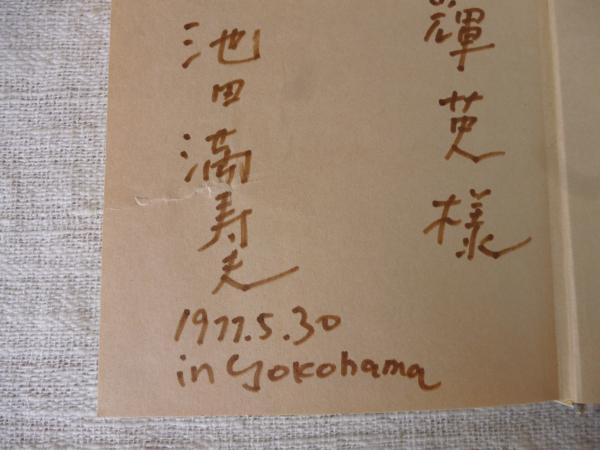 輝英様
池田満寿夫
1977.5.30
in yokohama